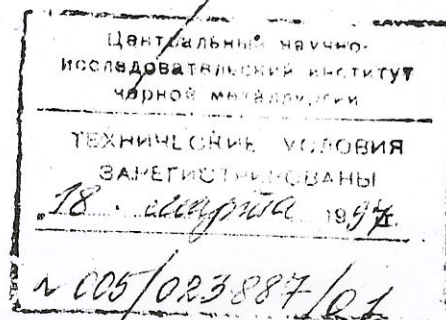 Центральный научно-
исследовательский институт
черной металлургии
ТЕХНИЧЕСКИЕ УСЛОВИЯ
ЗАРЕГИСТРИРОВАНЫ
"18. марта 1997г.
N 005/023887/01